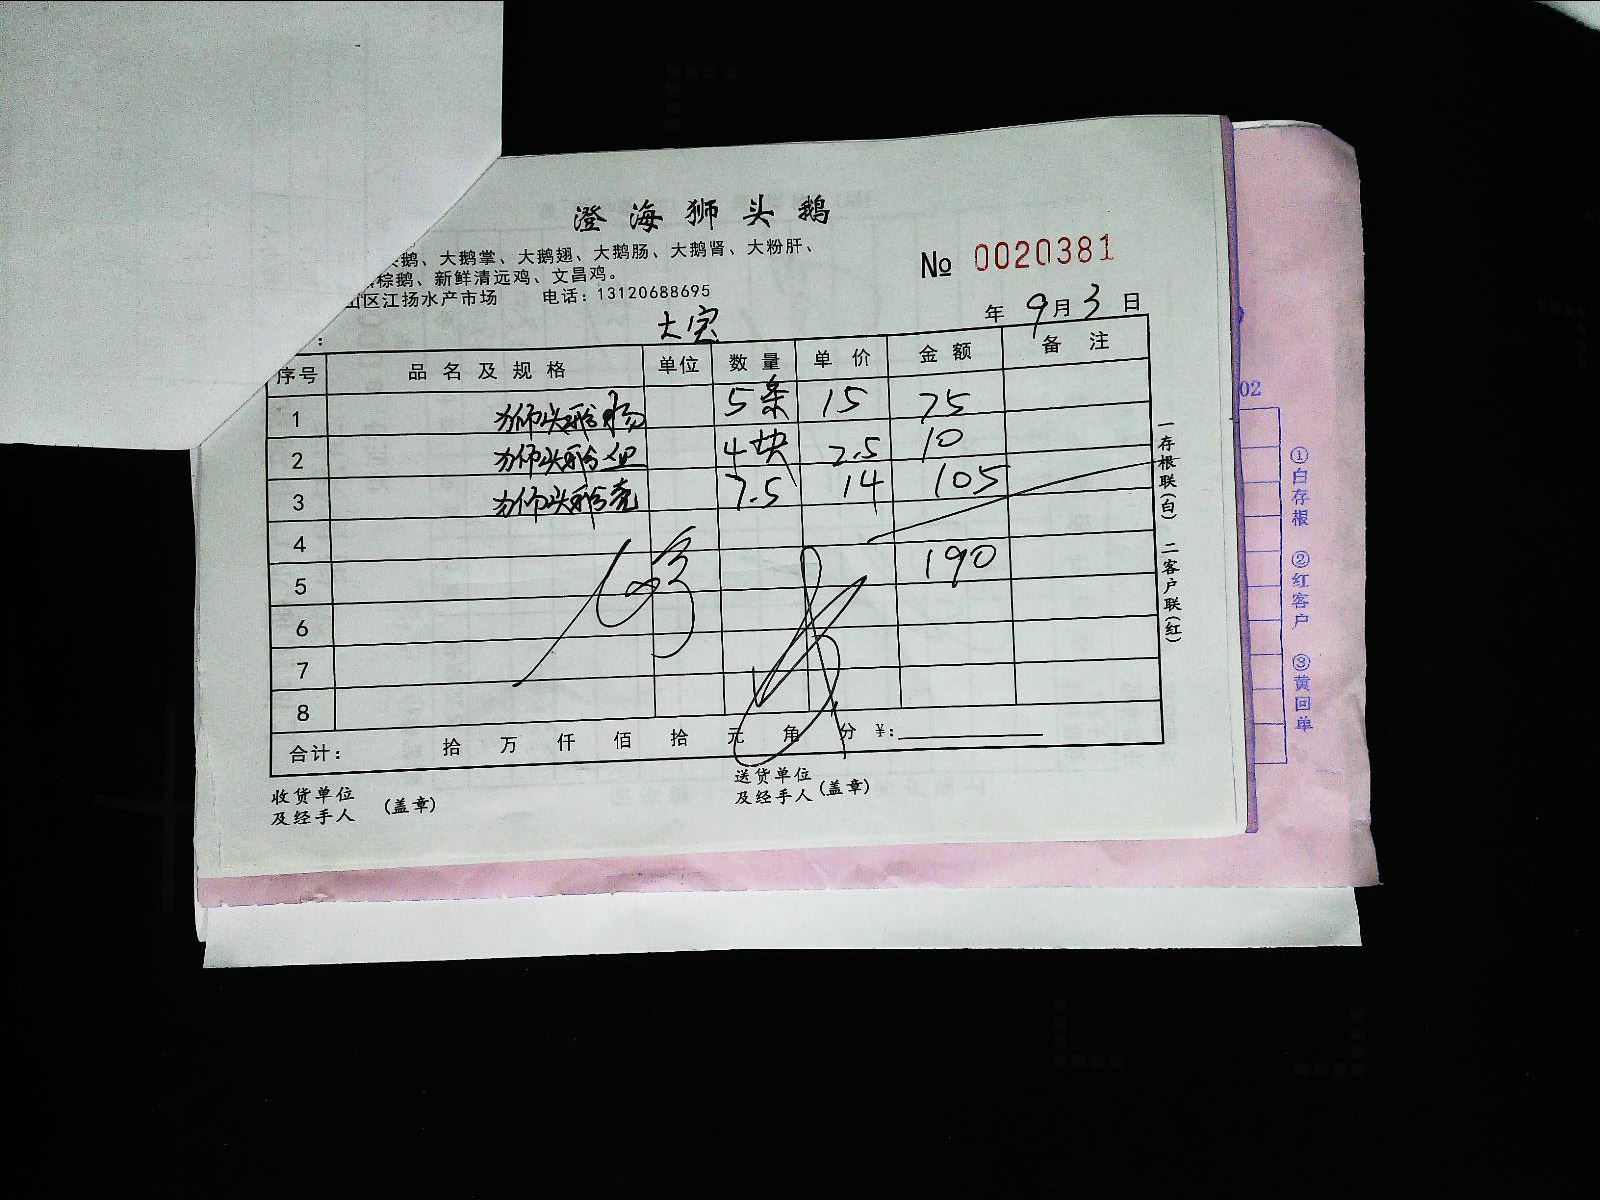 澄海狮头鹅
头鹅、大鹅掌、大鹅翅、大鹅肠、大鹅肾、大粉肝、
棕鹅、新鲜清远鸡、文昌鸡。
山区江扬水产市场 电话：13120688695
№ 0020381
： 大宝 年 9月 3 日
序号 品名及规格 单位 数量 单价 金额 备注
1 狮头鹅肠 5条 15 75
2 狮头鹅血 4块 2.5 10
3 狮头鹅壳 7.5 14 105
4
5 190
6
7
8
合计： 拾 万 仟 佰 拾 元 角 分 ¥：
收货单位
及经手人 （盖章）
送货单位
及经手人（盖章）
一存根联（白） 二客户联（红）
02
①白存根 ②红客户 ③黄回单